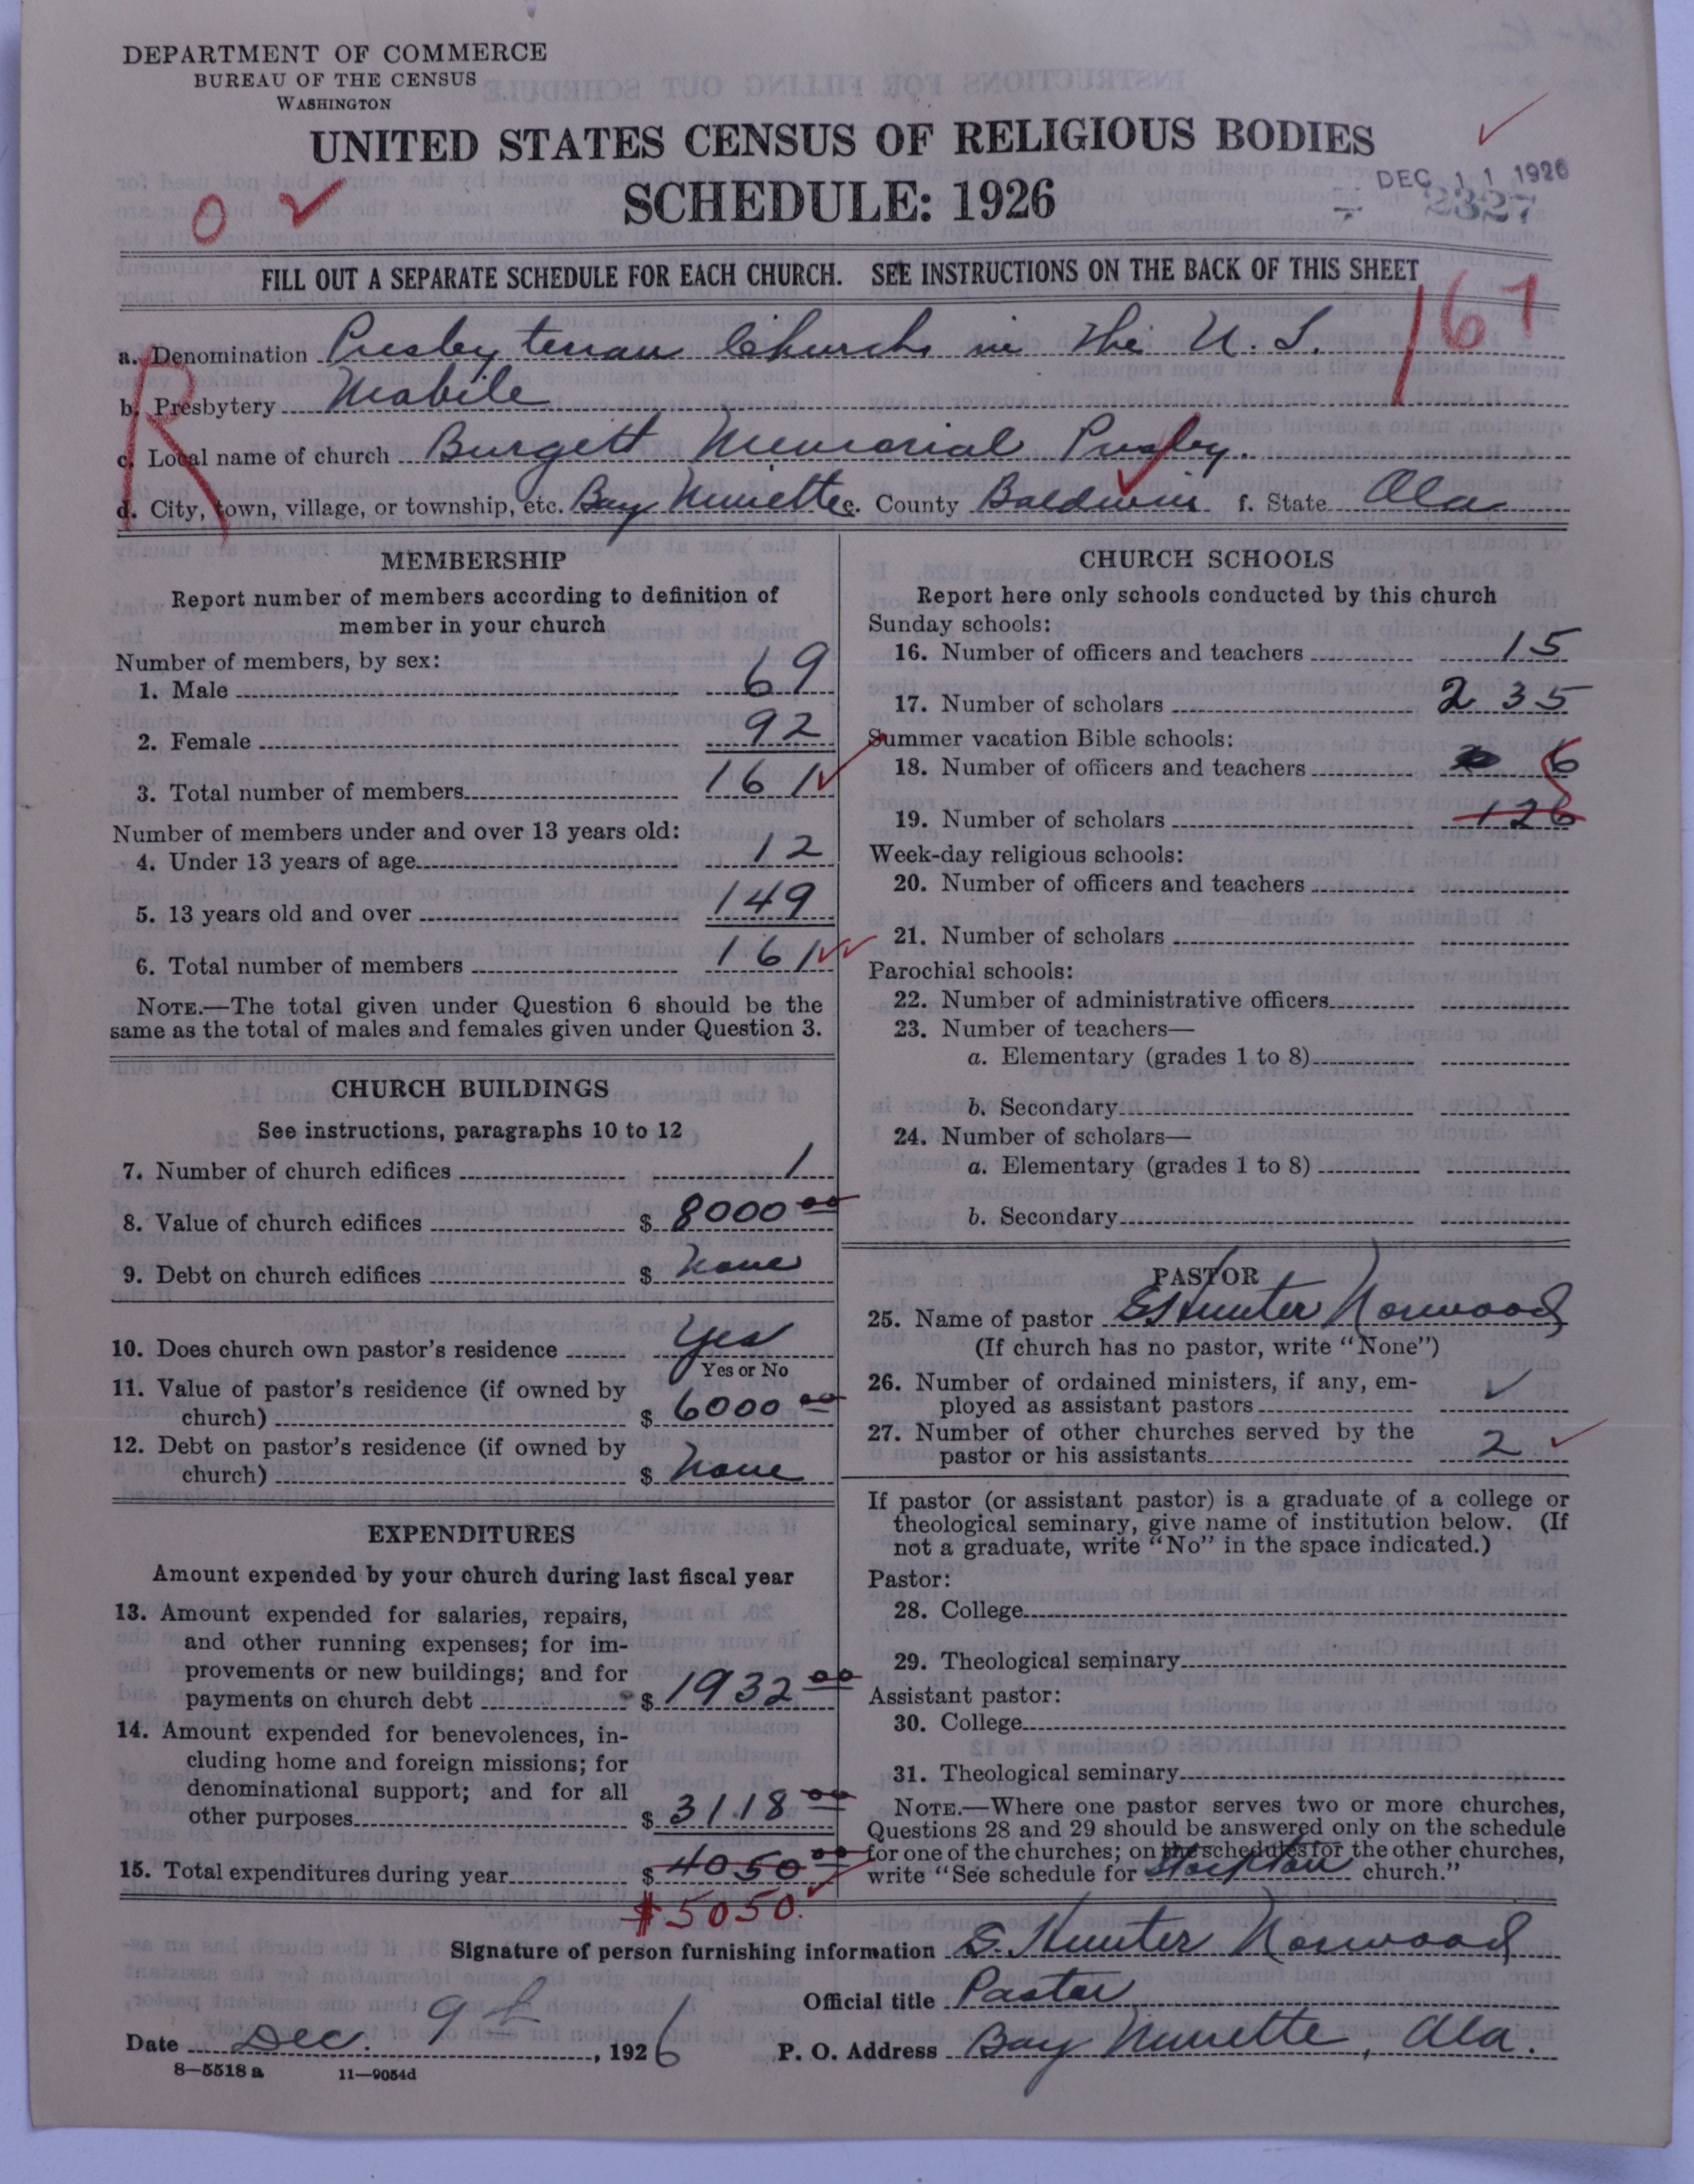 DEPARTMENT OF COMMERCE
BUREAU OF THE CENSUS
WASHINGTON
UNITED STATES CENSUS OF RELIGIOUS BODIES
SCHEDULE: 1926
DEC 11 1926
2327
O
FILL OUT A SEPARATE SCHEDULE FOR EACH CHURCH. SEE INSTRUCTIONS ON THE BACK OF THIS SHEET
167
R
a. Denomination Presbyterian Church in the U. S.
b. Presbytery Mobile
c. Local name of church Burgett Memorial Presby.
d. City, town, village, or township, etc. Bay Minette e. County Baldwin f. State Ala
MEMBERSHIP
Report number of members according to definition of
member in your church
Number of members, by sex:
1. Male 69
2. Female 92
3. Total number of members 161
Number of members under and over 13 years old:
4. Under 13 years of age 12
5. 13 years old and over 149
6. Total number of members 161
NOTE.—The total given under Question 6 should be the
same as the total of males and females given under Question 3.
CHURCH BUILDINGS
See instructions, paragraphs 10 to 12
7. Number of church edifices 1
8. Value of church edifices $ 8000 00
9. Debt on church edifices $ None
10. Does church own pastor's residence Yes
Yes or No
11. Value of pastor's residence (if owned by
church) $ 6000 00
12. Debt on pastor's residence (if owned by
church) $ None
EXPENDITURES
Amount expended by your church during last fiscal year
13. Amount expended for salaries, repairs,
and other running expenses; for im-
provements or new buildings; and for
payments on church debt $ 1932 00
14. Amount expended for benevolences, in-
cluding home and foreign missions; for
denominational support; and for all
other purposes $ 3118 00
15. Total expenditures during year $ 4050 00
$5050.
CHURCH SCHOOLS
Report here only schools conducted by this church
Sunday schools:
16. Number of officers and teachers 15
17. Number of scholars 235
Summer vacation Bible schools:
18. Number of officers and teachers 6
19. Number of scholars 126
Week-day religious schools:
20. Number of officers and teachers
21. Number of scholars
Parochial schools:
22. Number of administrative officers
23. Number of teachers—
a. Elementary (grades 1 to 8)
b. Secondary
24. Number of scholars—
a. Elementary (grades 1 to 8)
b. Secondary
PASTOR
25. Name of pastor S Hunter Norwood
(If church has no pastor, write "None")
26. Number of ordained ministers, if any, em-
ployed as assistant pastors
27. Number of other churches served by the
pastor or his assistants 2
If pastor (or assistant pastor) is a graduate of a college or
theological seminary, give name of institution below. (If
not a graduate, write "No" in the space indicated.)
Pastor:
28. College
29. Theological seminary
Assistant pastor:
30. College
31. Theological seminary
NOTE.—Where one pastor serves two or more churches,
Questions 28 and 29 should be answered only on the schedule
for one of the churches; on the schedules for the other churches,
write "See schedule for Stockton church."
Signature of person furnishing information S. Hunter Norwood
Official title Pastor
Date Dec. 9th, 1926 P. O. Address Bay Minette, Ala.
8—5518 a 11—9054d